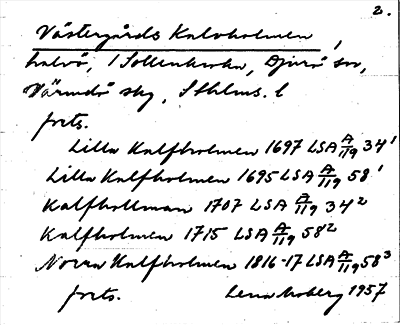 2.
Västergårds Kalvholmen,
halvö, i Sollenkroka, Djurö sn,
Värmdö skg, Sthlms. l
forts.
Lilla Kalfholmen 1697 LSA A/119 34¹
Lilla Kalfholmen 1695 LSA A/119 58¹
Kalfhollman 1707 LSA A/119 34²
Kalfholmen 1715 LSA A/119 58²
Norra Kalfholmen 1816-17 LSA A/119 58³
forts. Lena Moberg 1957